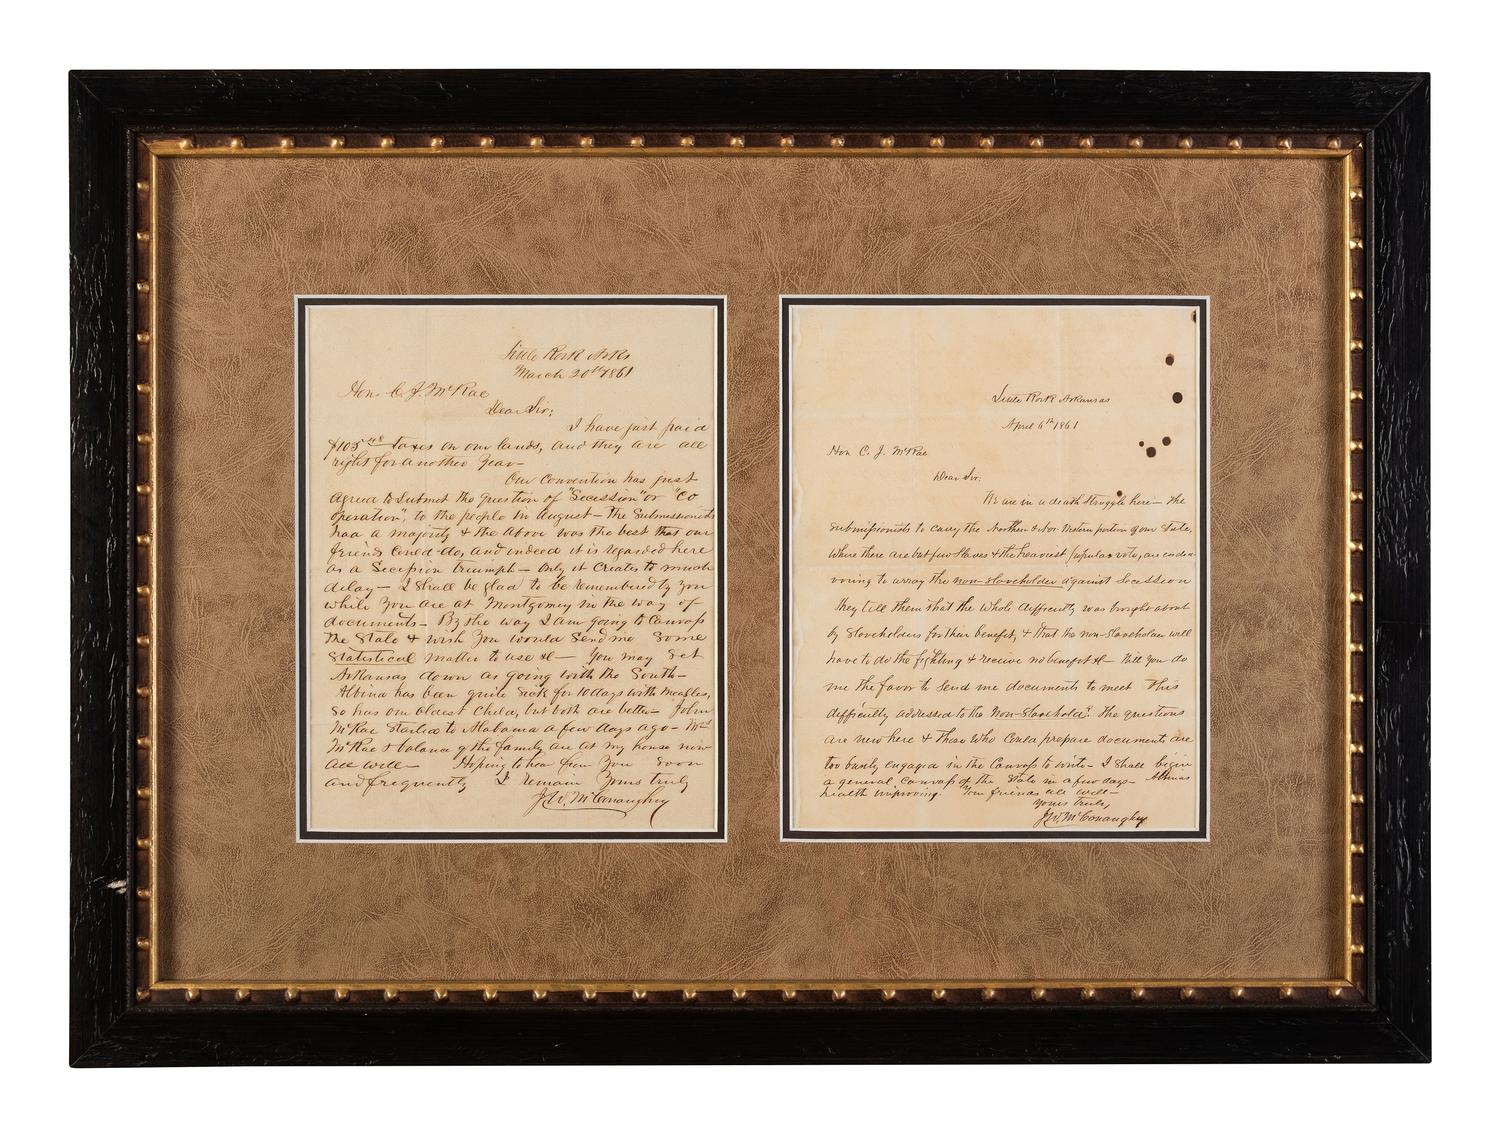 Little Rock Arks
March 20th 1861
Hon. C. J. McRae
Dear Sir;
I have just paid
$105.48 taxes on our lands, and they are all
right for another year—
Our Convention has just
agreed to submit the question of "Secession" or "Co
operation", to the people in August— The Submissionists
had a majority & the above was the best that our
friends could do, and indeed it is regarded here
as a Secession triumph— Only it creates to much
delay— I shall be glad to be remembered by you
while you are at Montgomery in the way of
documents— By the way I am going to Canvass
the State & wish you would send me some
Statistical matter to use &c— You may set
Arkansas down as going with the South—
Albina has been quite sick for 10 days with measles,
so has our oldest child, but both are better— John
McRae started to Alabama a few days ago— Mrs
McRae & balance of the family are at my house now
all well— Hoping to hear from you soon
and frequently I remain yours truly
J. W. McConaughey
Little Rock Arkansas
April 6th 1861
Hon C. J. McRae
Dear Sir:
We are in a death struggle here— The
submissionists to carry the Northern & Nor-Western portion of our State,
where there are but few slaves & the heaviest popular vote, are endea-
voring to array the non-slaveholder against Secession
they tell them that the whole difficulty was brought about
by slaveholders for their benefit, & that the non-slaveholder will
have to do the fighting & receive no benefit &c— Will you do
me the favor to send me documents to meet this
difficulty addressed to the Non-Slavehold? The questions
are new here & those who could prepare documents are
too busily engaged in the Canvass to write— I shall begin
a general canvass of the State in a few days— Albinas
health improving. Your friends all well—
Yours truly,
J. W. McConaughey